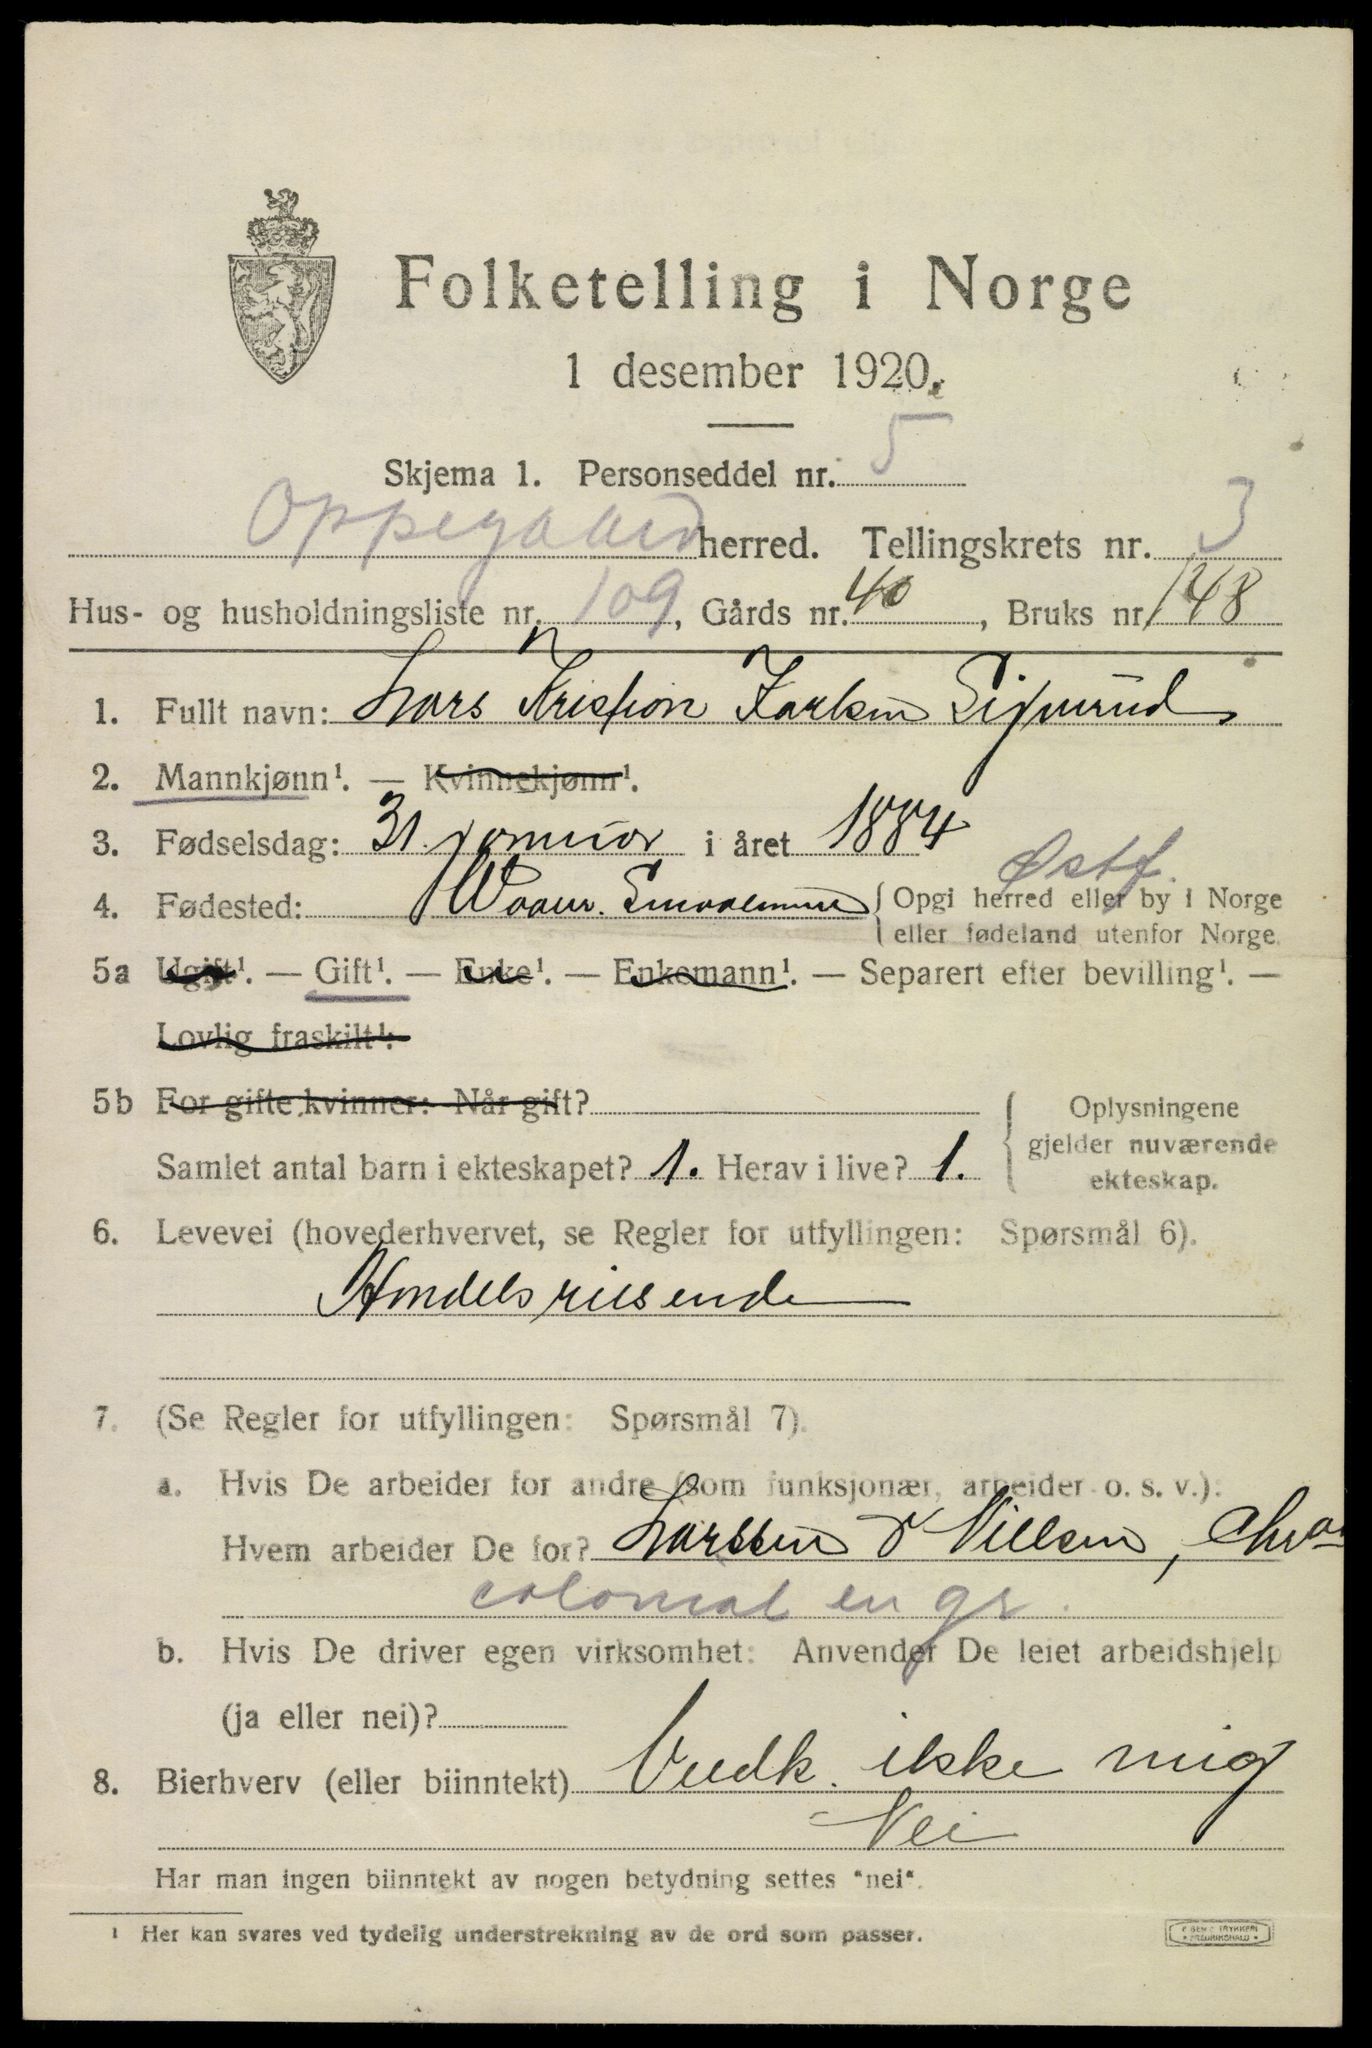 Folketelling i Norge
1 desember 1920.
Skjema 1. Personseddel nr. 5
Oppegaard herred. Tellingskrets nr. 3
Hus- og husholdningsliste nr. 109, Gårds nr. 40, Bruks nr. 148
1. Fullt navn: Lars Kristian Karlsen
2. Mannkjønn¹. — Kvinnekjønn¹.
3. Fødselsdag: 31. januar i året 1884
Østf.
4. Fødested: Vaaler. Smaalenene { Opgi herred eller by i Norge
eller fødeland utenfor Norge.
5a Ugift¹. — Gift¹. — Enke¹. — Enkemann¹. — Separert efter bevilling¹. —
Lovlig fraskilt¹.
5b For gifte kvinner: Når gift?
Samlet antal barn i ekteskapet? 1. Herav i live? 1.
Oplysningene
gjelder nuværende
ekteskap.
6. Levevei (hovederhvervet, se Regler for utfyllingen: Spørsmål 6).
Handelsreisende
7. (Se Regler for utfyllingen: Spørsmål 7).
a. Hvis De arbeider for andre (som funksjonær, arbeider o. s. v.):
Hvem arbeider De for? Larssen & Nielsen, Chra
colonial en gr.
b. Hvis De driver egen virksomhet: Anvender De leiet arbeidshjelp
(ja eller nei)?
8. Bierhverv (eller biinntekt) Vedk. ikke mig
Nei
Har man ingen biinntekt av nogen betydning settes "nei".
¹ Her kan svares ved tydelig understrekning av de ord som passer.